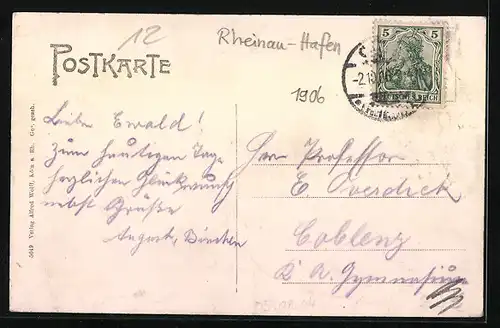 12
Rheinau-Hafen
1906
POSTKARTE
5 5
DEUTSCHES REICH
Lieber Ewald!
Zum heutigen Tage
herzlichen Glückwunsch
nebst Grüße
August,
Herr Professor
E Overdick
Coblenz
K A. Gymnasium
5649 Verlag Alfred Wolff, Köln a. Rh. Ges. gesch.